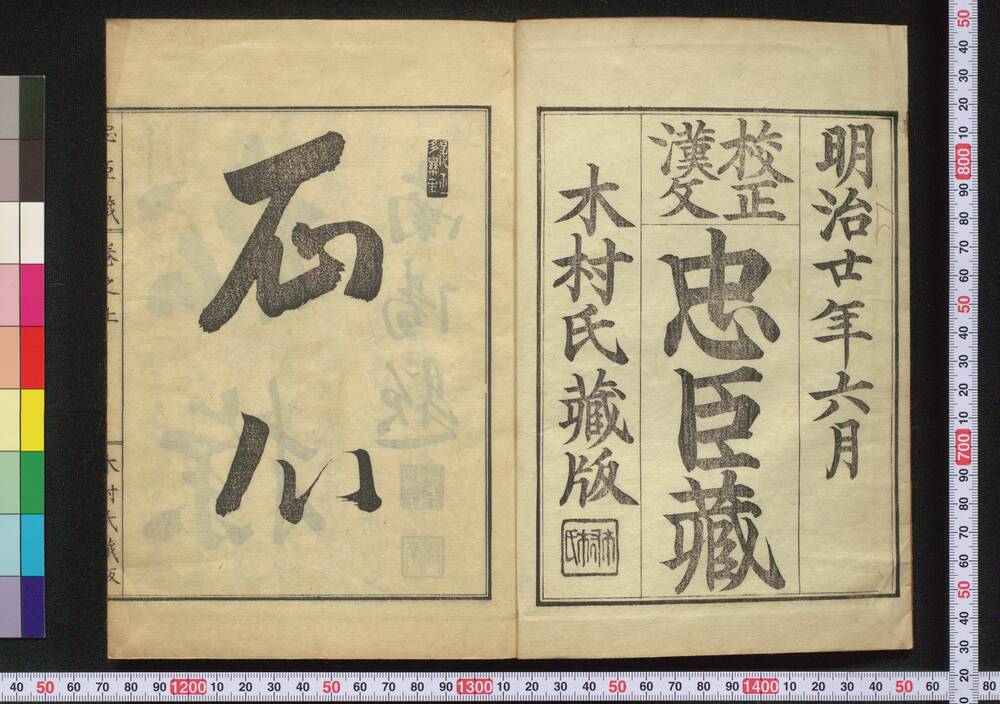 明治廿年六月
校正
漢文
忠臣藏
木村氏藏版
木村氏
石心
忠臣藏 卷之上
木村氏藏版
40 50 60 70 80 90 1200 10 20 30 40 50 60 70 80 90 1300 10 20 30 40 50 60 70 80 90 1400 10 20 30 40 50 60 80
50 40 30 20 10 800 90 80 70 60 50 40 30 20 10 700 90 80 70 60 50 40 30 20